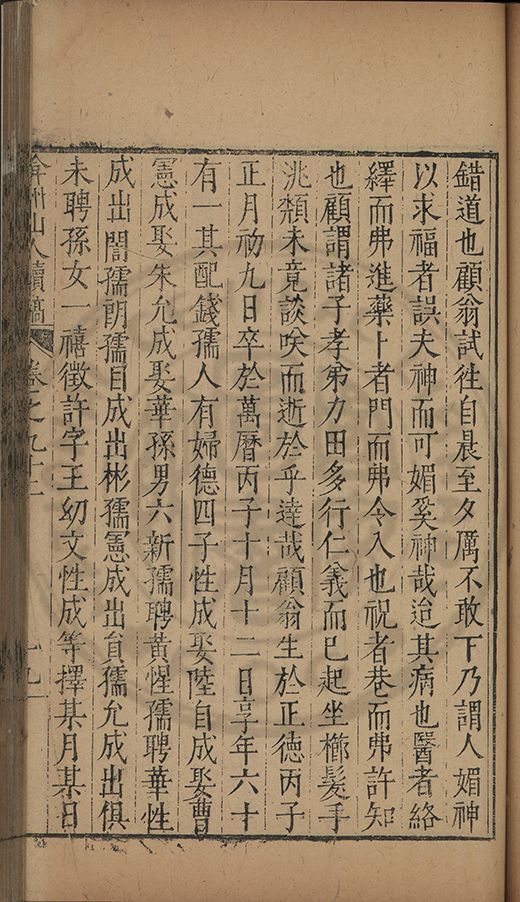 錯道也顧翁試徃自晨至夕厲不敢下乃謂人媚神
以求福者誤夫神而可媚奚神哉迨其病也醫者絡
繹而弗進藥卜者門而弗令入也祝者巷而弗許知
也顧謂諸子孝弟力田多行仁義而已起坐櫛髮手
洮頮未竟談咲而逝於乎達哉顧翁生於正德丙子
正月初九日卒於萬曆丙子十月十二日享年六十
有一其配錢孺人有婦德四子性成娶陸自成娶曹
憲成娶朱允成娶華孫男六新孺聘黃惺孺聘華性
成出誾孺朗孺自成出彬孺憲成出貟孺允成出俱
未聘孫女一禧徵許字王幼文性成等擇某月某日
弇州山人續稿 卷之九十二